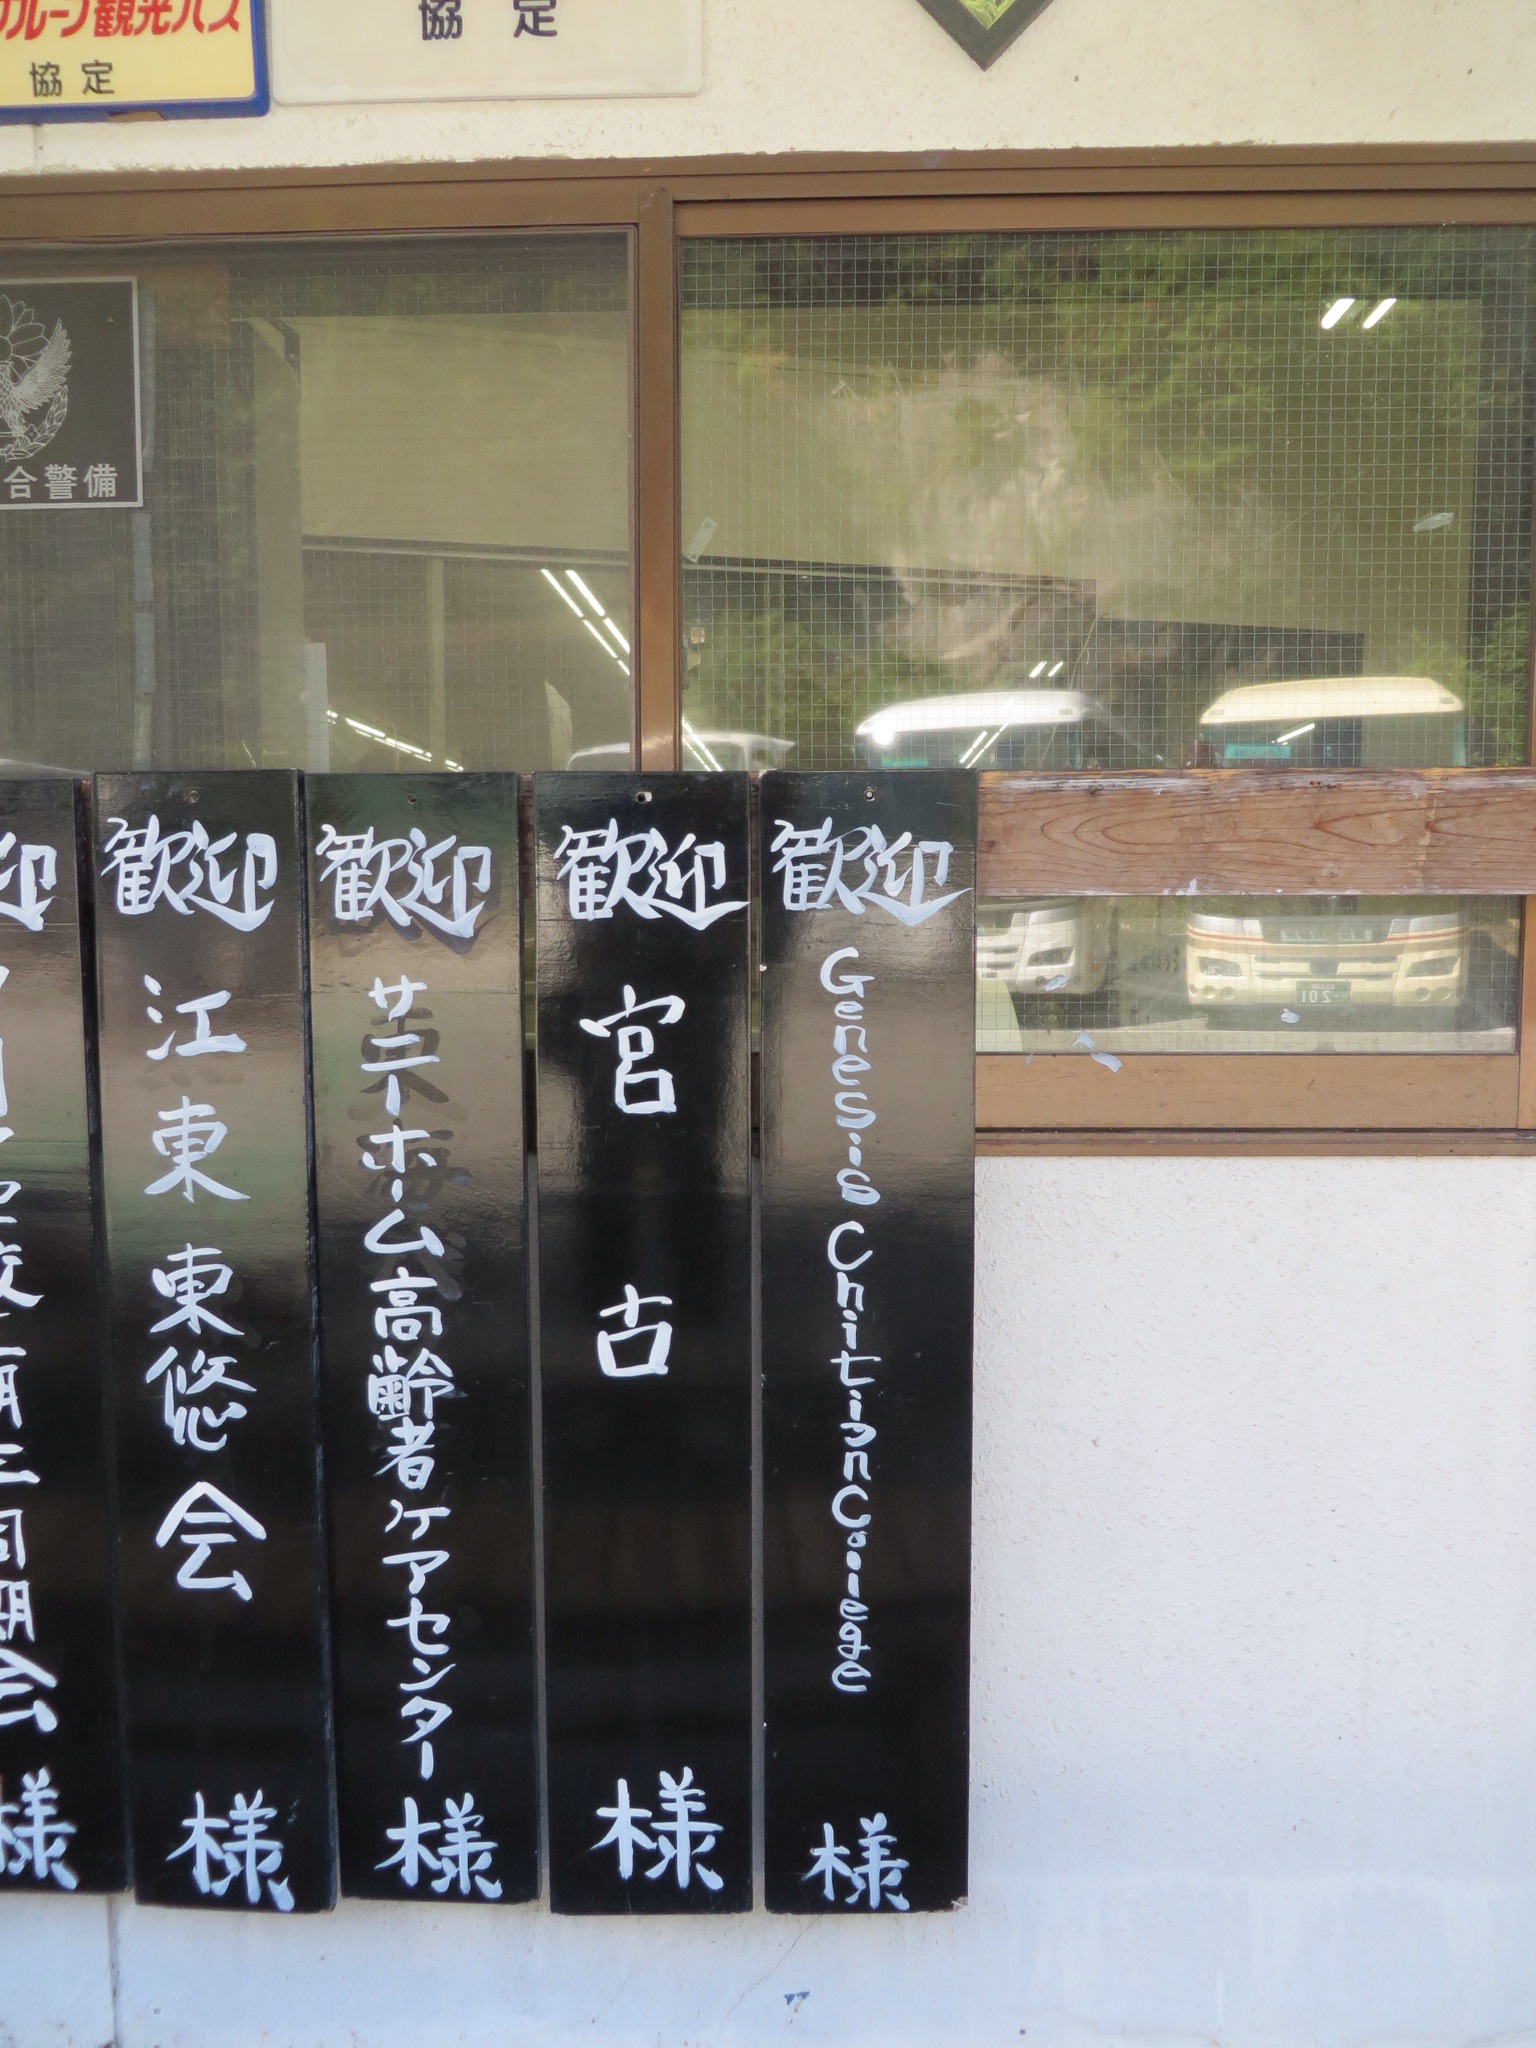 グループ観光バス
協定
協定
合警備
歓迎
Genesis Chitian Coiege
様
歓迎
宮古
様
歓迎
サニーホーム高齢者ケアセンター
様
歓迎
江東東悠会
様
迎
期会
様
201